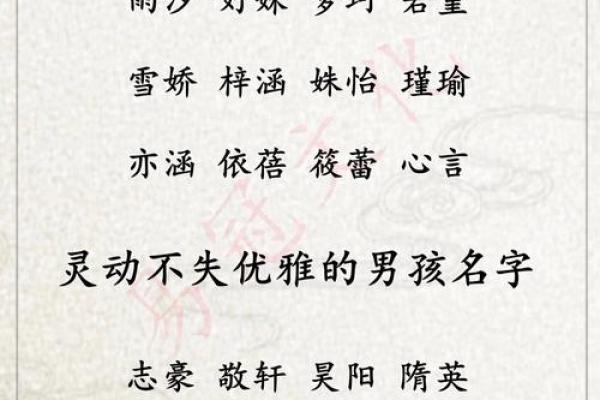 雪娇 梓涵 姝怡 瑾瑜
亦涵 依蓓 筱蕾 心言
灵动不失优雅的男孩名字
志豪 敬轩 昊阳 隋英
易冠文化